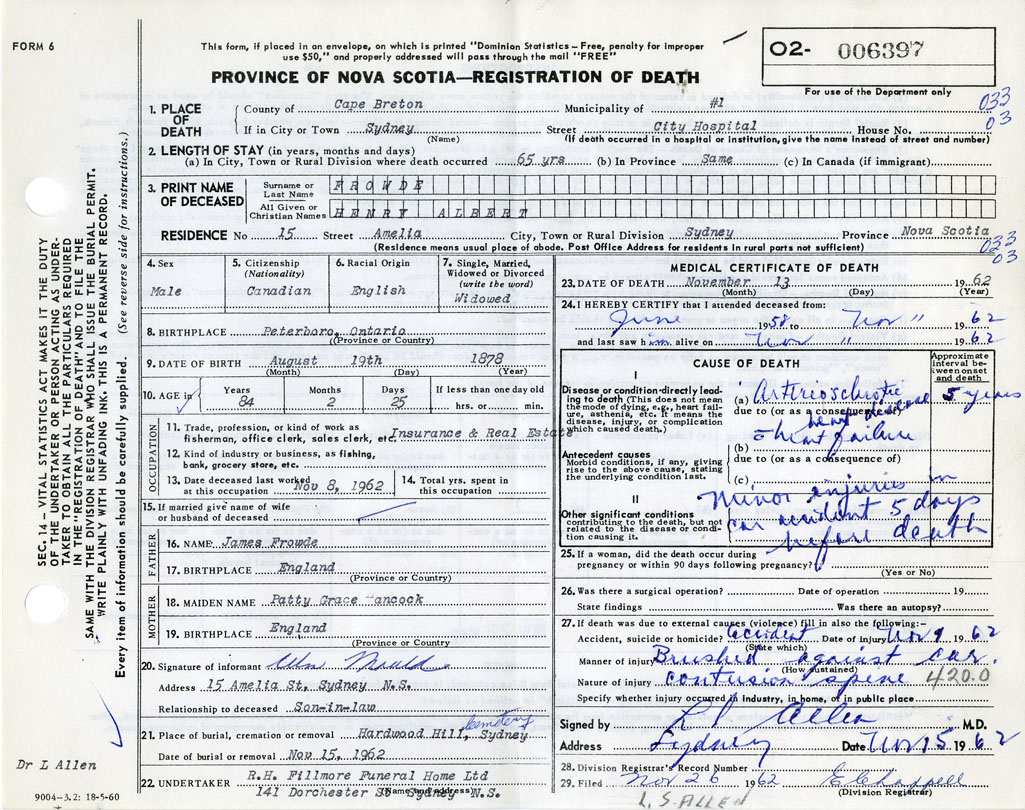 FORM 6
This form, if placed in an envelope, on which is printed "Dominion Statistics – Free, penalty for improper
use $50," and properly addressed will pass through the mail "FREE"
O2- 006397
For use of the Department only
PROVINCE OF NOVA SCOTIA—REGISTRATION OF DEATH
033
03
1. PLACE OF DEATH County of Cape Breton Municipality of #1
If in City or Town Sydney Street City Hospital House No.
(Name) (If death occurred in a hospital or institution, give the name instead of street and number)
2. LENGTH OF STAY (in years, months and days)
(a) In City, Town or Rural Division where death occurred 65 yrs (b) In Province Same (c) In Canada (if immigrant)
3. PRINT NAME OF DECEASED Surname or Last Name FROWDE
All Given or Christian Names HENRY ALBERT
RESIDENCE No 15 Street Amelia City, Town or Rural Division Sydney Province Nova Scotia
(Residence means usual place of abode. Post Office Address for residents in rural parts not sufficient)
033
03
4. Sex
Male
5. Citizenship (Nationality)
Canadian
6. Racial Origin
English
7. Single, Married, Widowed or Divorced (write the word)
Widowed
8. BIRTHPLACE Peterboro, Ontario
(Province or Country)
9. DATE OF BIRTH August 19th 1878
(Month) (Day) (Year)
10. AGE in Years 84 Months 2 Days 25 If less than one day old
hrs. or min.
OCCUPATION
11. Trade, profession, or kind of work as
fisherman, office clerk, sales clerk, etc. Insurance & Real Estate
12. Kind of industry or business, as fishing,
bank, grocery store, etc.
13. Date deceased last worked
at this occupation Nov 8, 1962
14. Total yrs. spent in
this occupation
15. If married give name of wife
or husband of deceased
FATHER
16. NAME James Frowde
17. BIRTHPLACE England
(Province or Country)
MOTHER
18. MAIDEN NAME Patty Grace ancock
19. BIRTHPLACE England
(Province or Country)
20. Signature of informant Wm Mould
Address 15 Amelia St, Sydney N.S.
Relationship to deceased Son-in-law
21. Place of burial, cremation or removal Hardwood Hill, Cemetery Sydney
Date of burial or removal Nov 15, 1962
22. UNDERTAKER R.H. Fillmore Funeral Home Ltd
141 Dorchester St Sydney N.S.
(Name and address)
MEDICAL CERTIFICATE OF DEATH
23. DATE OF DEATH November 13 1962
(Month) (Day) (Year)
24. I HEREBY CERTIFY that I attended deceased from:
June 1958 to Nov " 1962
and last saw him alive on Nov " 1962
CAUSE OF DEATH
Approximate interval between onset and death
I
Disease or condition directly leading to death (This does not mean the mode of dying, e.g., heart failure, asthenia, etc. It means the disease, injury, or complication which caused death.)
(a) Artriosclrotic heart disease 5 years
due to (or as a consequence of)
heart failure
(b)
due to (or as a consequence of)
(c)
Antecedent causes
Morbid conditions, if any, giving rise to the above cause, stating the underlying condition last.
II
Other significant conditions
contributing to the death, but not related to the disease or condition causing it.
Minor injuries in
car accident 5 days
before death
25. If a woman, did the death occur during
pregnancy or within 90 days following pregnancy?
(Yes or No)
26. Was there a surgical operation? Date of operation 19
State findings Was there an autopsy?
27. If death was due to external causes (violence) fill in also the following:–
Accident, suicide or homicide? Accident Date of injury Nov 9 1962
(State which)
Manner of injury Brushed against car.
(How sustained)
Nature of injury contusion spine 420.0
Specify whether injury occurred in industry, in home, or in public place
Signed by L S Allen M.D.
Address Sydney Date Nov 15 1962
28. Division Registrar's Record Number
29. Filed Nov 26 1962 E Chappell
(Division Registrar)
L. S. ALLEN
SEC. 14 – VITAL STATISTICS ACT MAKES IT THE DUTY
OF THE UNDERTAKER OR PERSON ACTING AS UNDER-
TAKER TO OBTAIN ALL THE PARTICULARS REQUIRED
IN THE "REGISTRATION OF DEATH" AND TO FILE THE
SAME WITH THE DIVISION REGISTRAR WHO SHALL ISSUE THE BURIAL PERMIT.
WRITE PLAINLY WITH UNFADING INK. THIS IS A PERMANENT RECORD.
Every item of information should be carefully supplied. (See reverse side for instructions.)
Dr L Allen
9004–3.2: 18-5-60